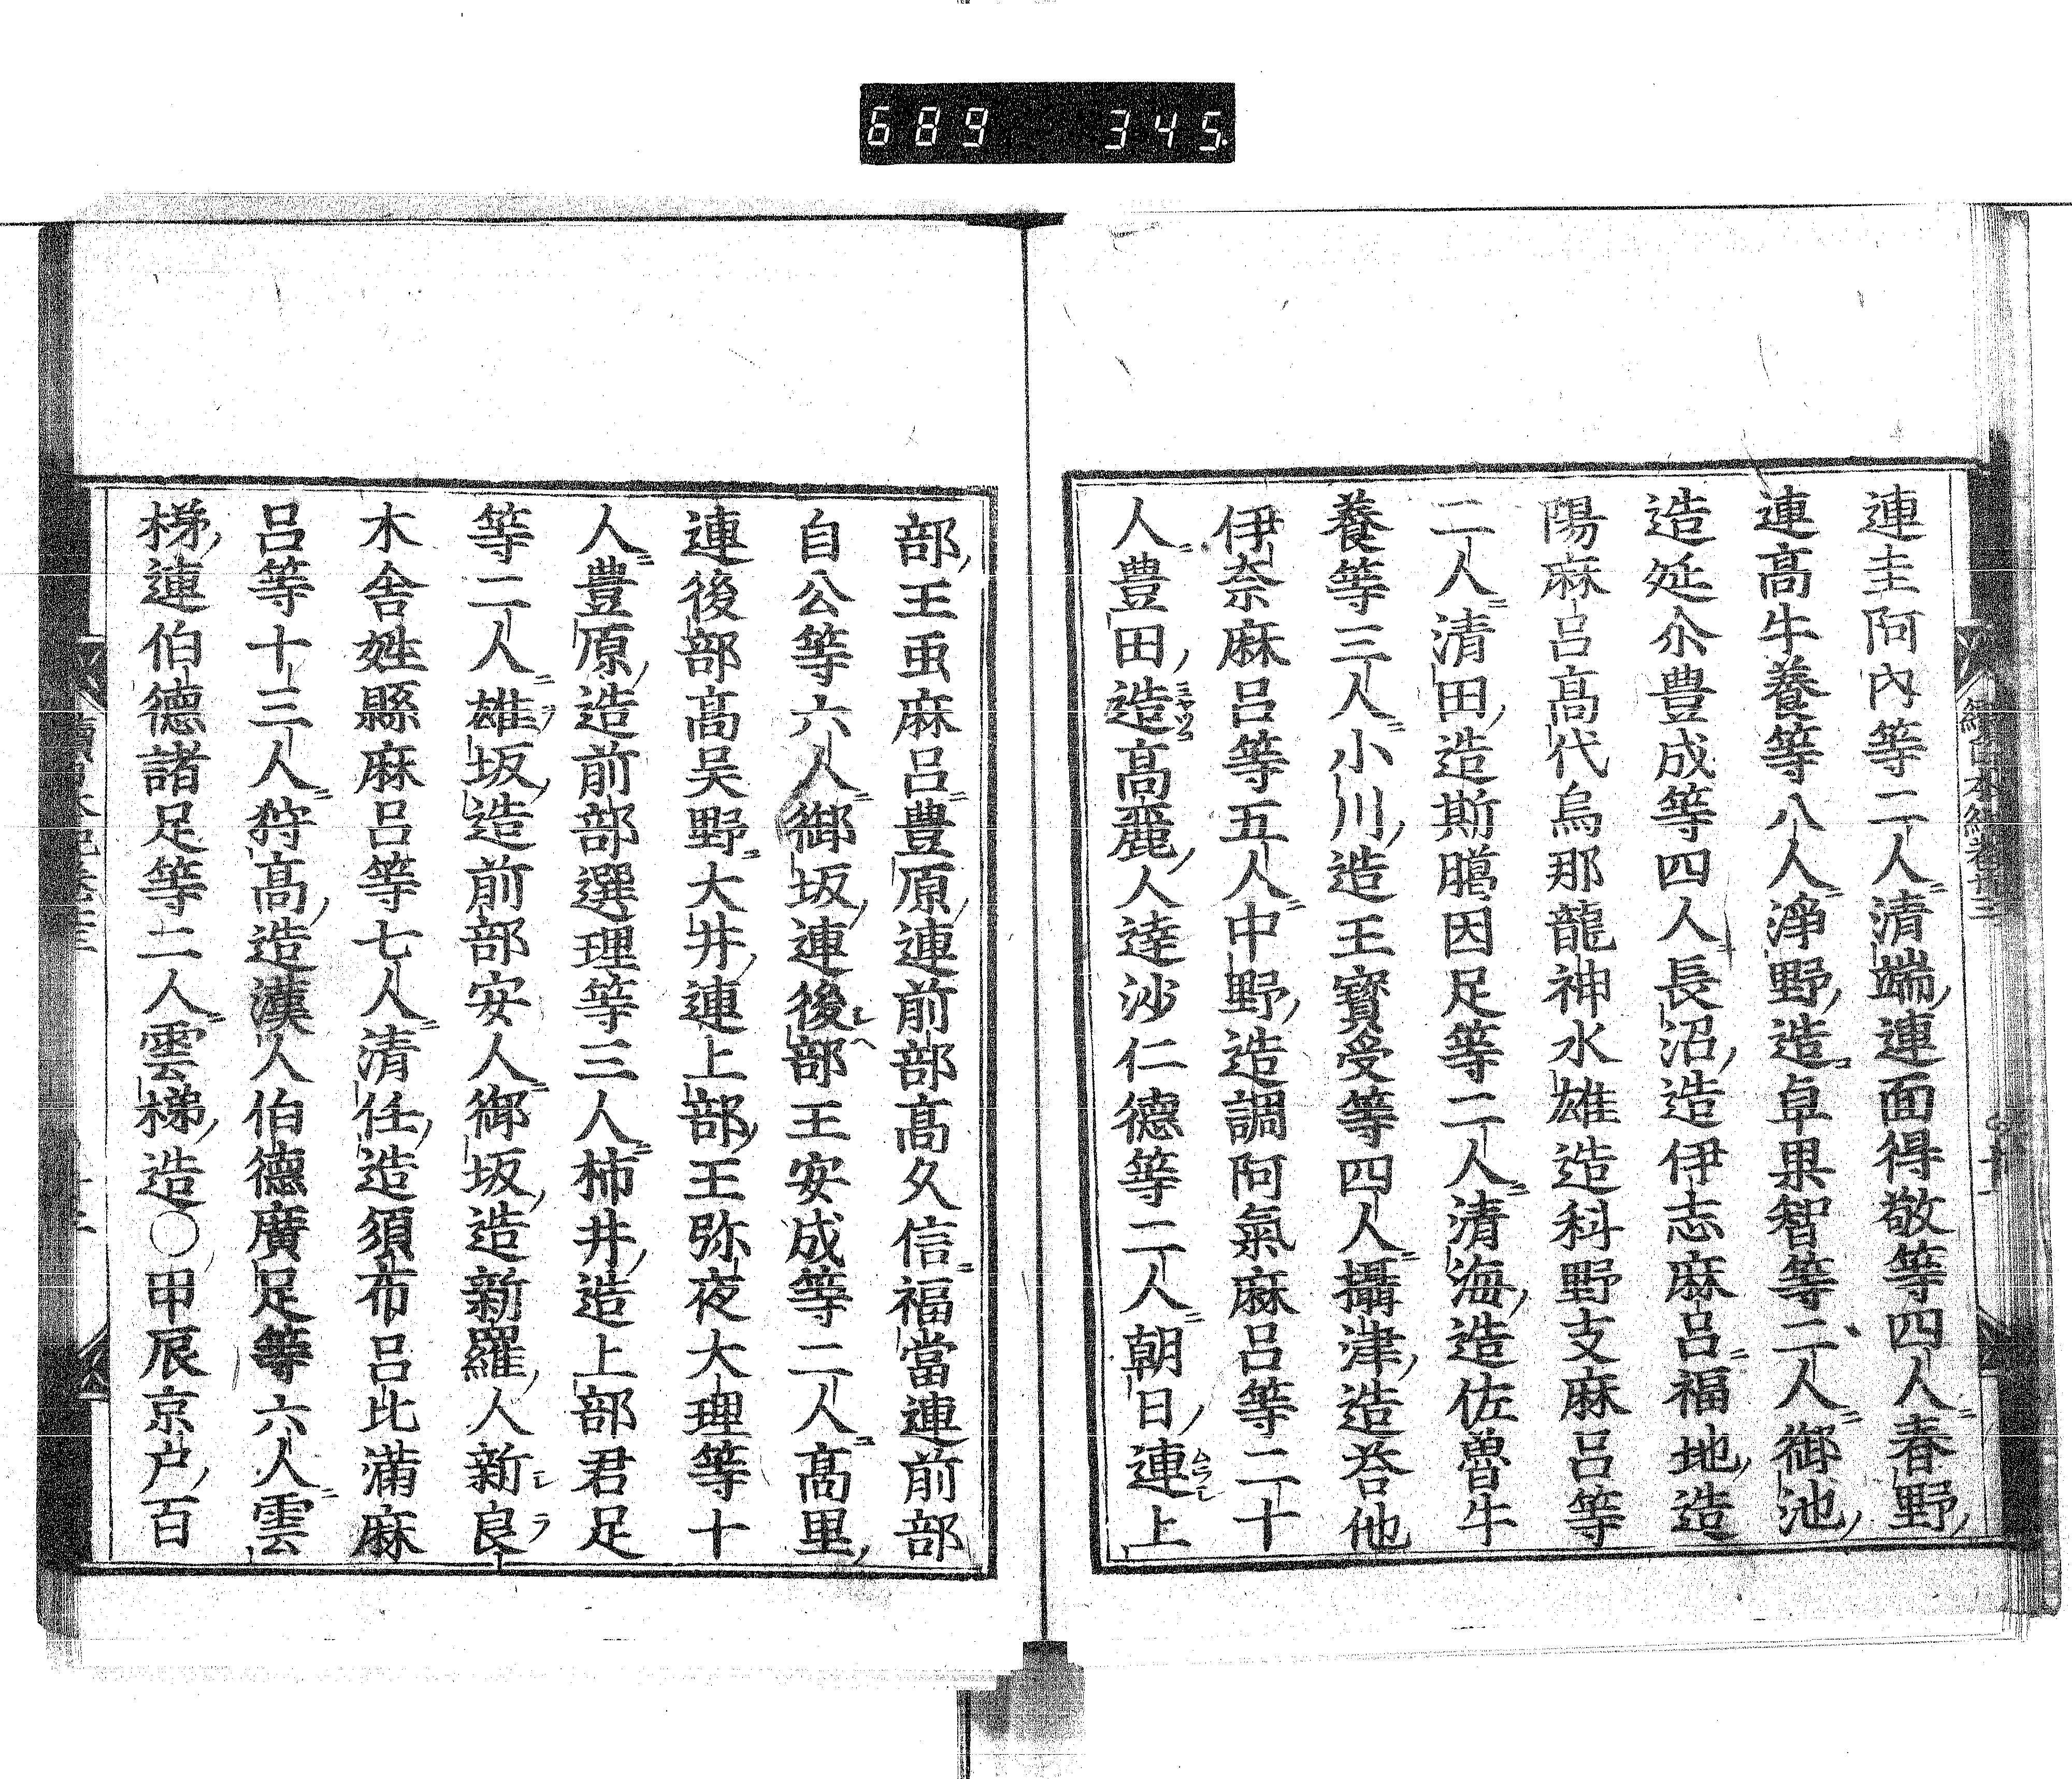 689 345
連圭阿內等二人清端連面得敬等四人春野
連高牛養等八人淨野造卓果智等二人御池
造延尒豊成等四人長沼造伊志麻呂福地造
陽麻呂高代烏那龍神水雄造科野支麻呂等
二人清田造斯﨟因足等二人清海造佐魯牛
養等三人小川造王寳受等四人攝津造荅他
伊奈麻呂等五人中野造調阿氣麻呂等二十
人豊田造高麗人達沙仁德等二人朝日連上
部王虫麻呂豊原連前部高久信福當連前部
自公等六人御坂連後部王安成等二人高里
連後部高吴野大井連上部王弥夜大理等十
人豊原造前部選理等三人柿井造上部君足
等二人雄坂造前部安人御坂造新羅人新良
木舎姓縣麻呂等七人清住造須布呂比滿麻
呂等十三人狩高造漢人伯德廣足等六人雲
梯連伯德諸足等二人雲梯造〇甲辰京戸百